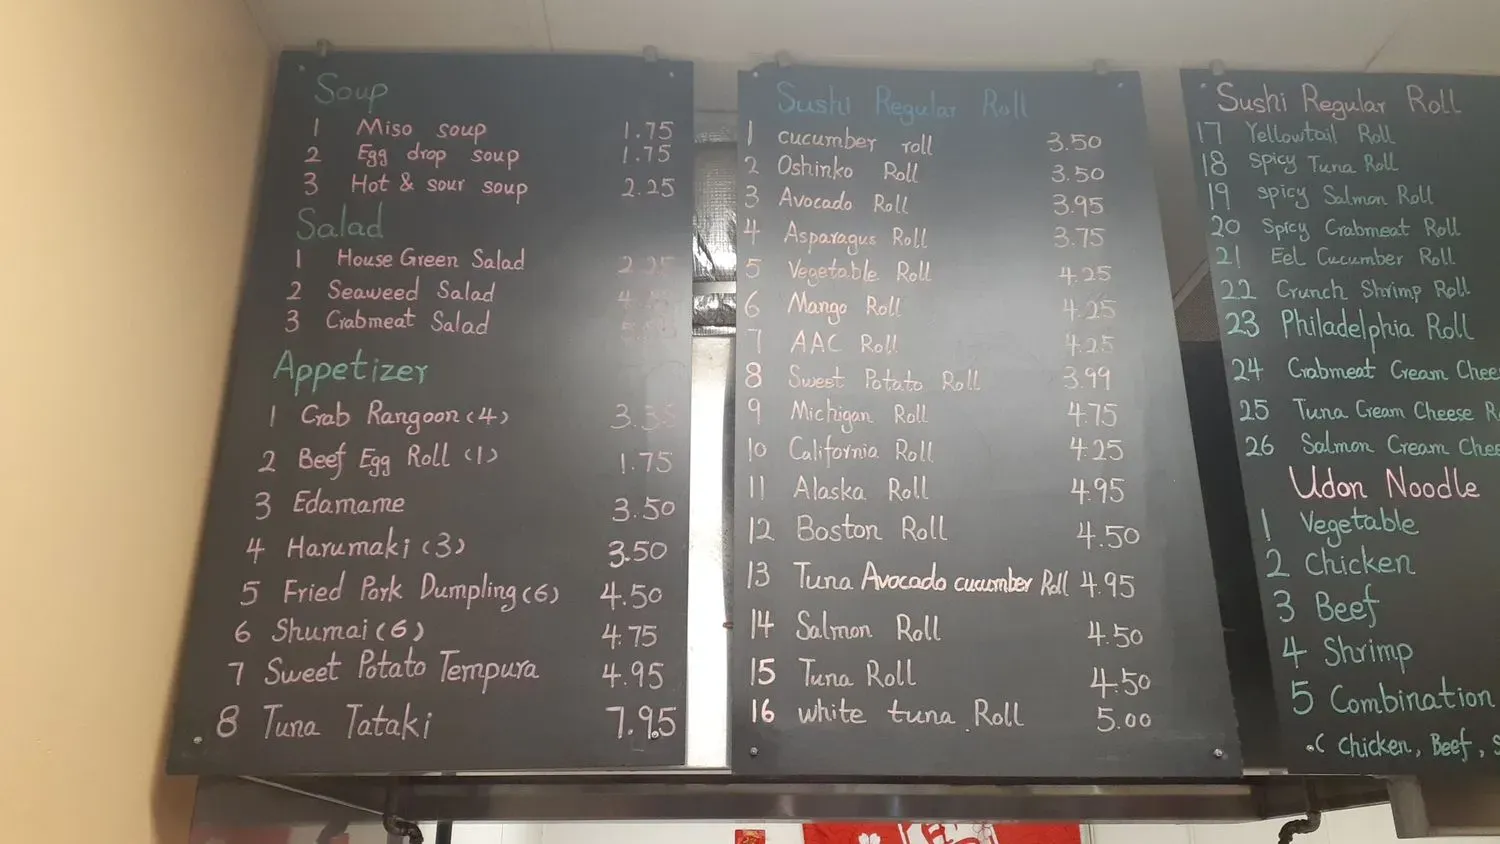 Soup
1 Miso soup 1.75
2 Egg drop soup 1.75
3 Hot & sour soup 2.25
Salad
1 House Green Salad 2.25
2 Seaweed Salad
3 Crabmeat Salad
Appetizer
1 Crab Rangoon (4)
2 Beef Egg Roll (1) 1.75
3 Edamame 3.50
4 Harumaki (3) 3.50
5 Fried Pork Dumpling (6) 4.50
6 Shumai (6) 4.75
7 Sweet Potato Tempura 4.95
8 Tuna Tataki 7.95
Sushi Regular Roll
1 cucumber roll 3.50
2 Oshinko Roll 3.50
3 Avocado Roll 3.95
4 Asparagus Roll 3.75
5 Vegetable Roll 4.25
6 Mango Roll 4.25
7 AAC Roll 4.25
8 Sweet Potato Roll 3.99
9 Michigan Roll 4.75
10 California Roll 4.25
11 Alaska Roll 4.95
12 Boston Roll 4.50
13 Tuna Avocado cucumber Roll 4.95
14 Salmon Roll 4.50
15 Tuna Roll 4.50
16 white tuna Roll 5.00
Sushi Regular Roll
17 Yellowtail Roll
18 Spicy Tuna Roll
19 spicy Salmon Roll
20 Spicy Crabmeat Roll
21 Eel Cucumber Roll
22 Crunch Shrimp Roll
23 Philadelphia Roll
24 Crabmeat Cream Chee
25 Tuna Cream Cheese R
26 Salmon Cream Chee
Udon Noodle
1 Vegetable
2 Chicken
3 Beef
4 Shrimp
5 Combination
( Chicken, Beef, S